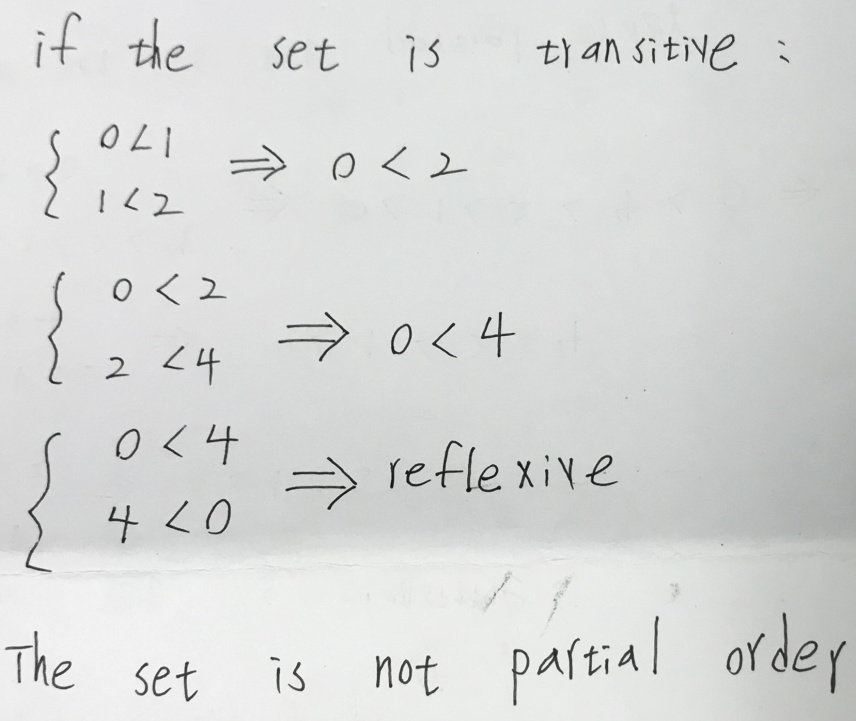 if the set is transitive :
{ 0<1
1<2 ⇒ 0 < 2
{ 0 < 2
2 < 4 ⇒ 0 < 4
{ 0 < 4
4 < 0 ⇒ reflexive
The set is not partial order